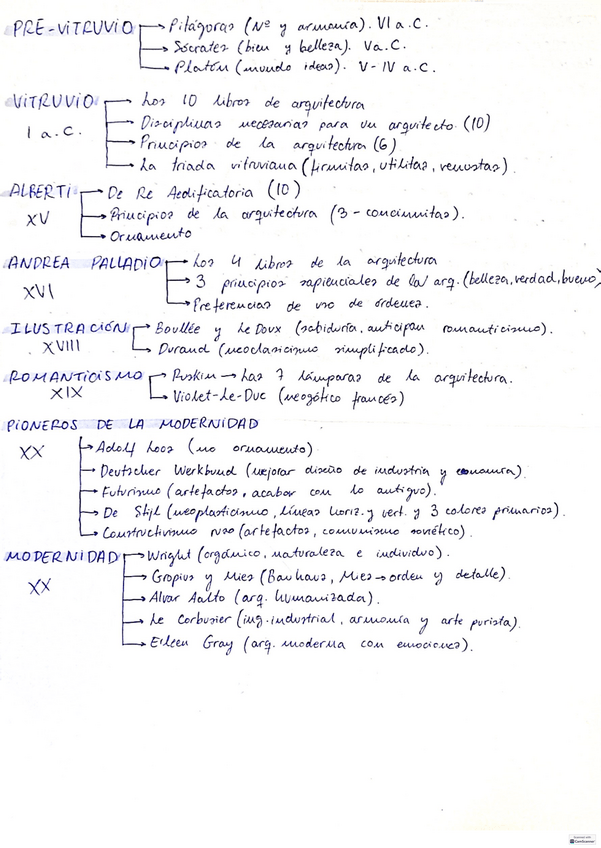 PRE-VITRUVIO → Pitágoras (Nº y armonía). VI a.C.
→ Sócrates (bien y belleza). V a.C.
→ Platón (mundo ideas). V-IV a.C.
VITRUVIO → Los 10 libros de arquitectura
I a.C. → Disciplinas necesarias para un arquitecto (10)
→ Principios de la arquitectura (6)
→ La triada vitruviana (firmitas, utilitas, venustas).
ALBERTI → De Re Aedificatoria (10)
XV → Principios de la arquitectura (3 - concinnitas).
→ Ornamento
ANDREA PALLADIO → Los 4 libros de la arquitectura
XVI → 3 principios sapienciales de la arq. (belleza, verdad, bueno)
→ Preferencias de uso de órdenes.
ILUSTRACIÓN → Boullée y Le Doux (sabiduría, anticipan romanticismo).
XVIII → Durand (neoclasicismo simplificado).
ROMANTICISMO → Ruskin → Las 7 lámparas de la arquitectura.
XIX → Violet-Le-Duc (neogótico francés)
PIONEROS DE LA MODERNIDAD
XX → Adolf Loos (no ornamento)
→ Deutscher Werkbund (mejorar diseño de industria y economía).
→ Futurismo (artefactos, acabar con lo antiguo).
→ De Stijl (neoplasticismo, líneas horiz. y vert. y 3 colores primarios).
→ Constructivismo ruso (artefactos, comunismo soviético).
MODERNIDAD → Wright (orgánico, naturaleza e individuo).
XX → Gropius y Mies (Bauhaus, Mies → orden y detalle).
→ Alvar Aalto (arq. humanizada).
→ Le Corbusier (ing. industrial, armonía y arte purista).
→ Eileen Gray (arq. moderna con emociones).
CamScanner